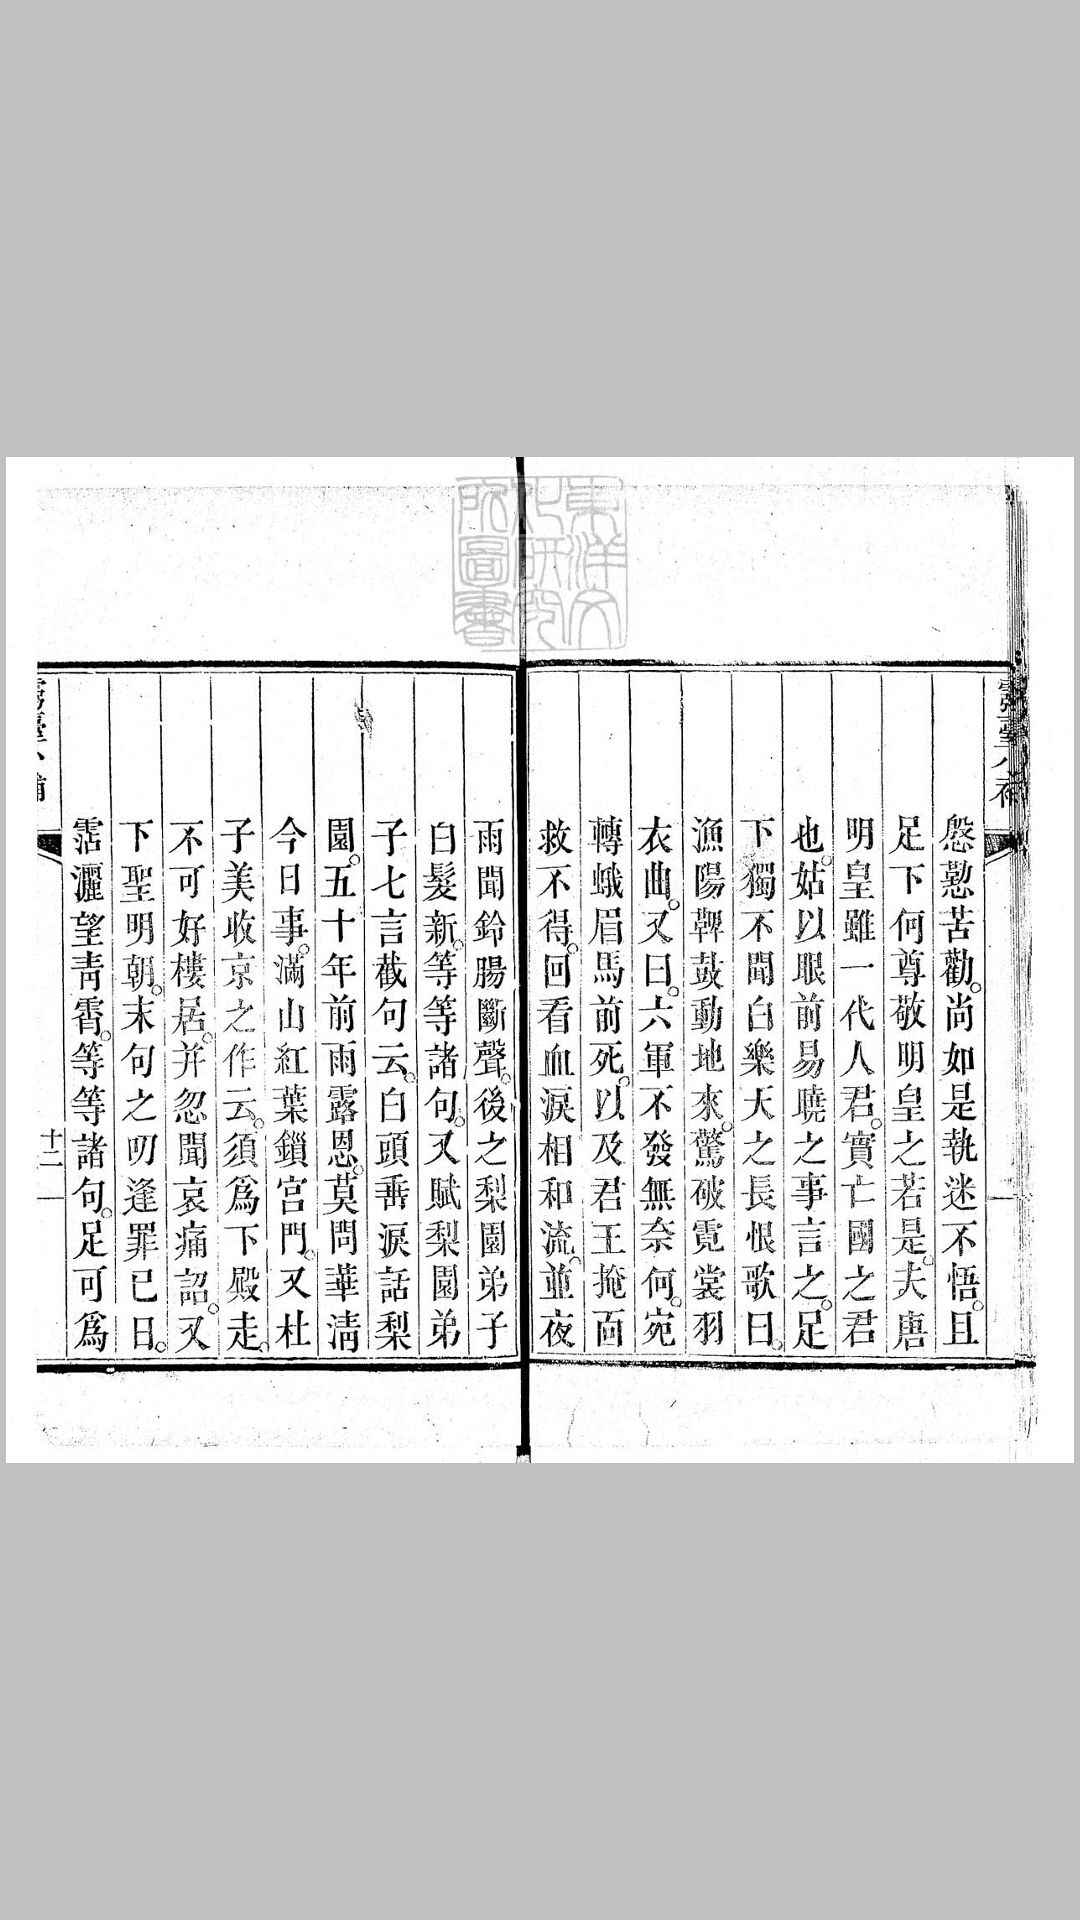 慇懃苦勸。尚如是執迷不悟。且
足下何尊敬明皇之若是。夫唐
明皇雖一代人君。實亡國之君
也。姑以眼前易曉之事言之。足
下獨不聞白樂天之長恨歌曰。
漁陽鞞鼓動地來。驚破霓裳羽
衣曲。又曰。六軍不發無奈何。宛
轉蛾眉馬前死。以及君王掩面
救不得。回看血淚相和流。並夜
雨聞鈴腸斷聲。後之梨園弟子
白髮新。等等諸句。又賦梨園弟
子七言截句云。白頭垂淚話梨
園。五十年前雨露恩。莫問華淸
今日事。滿山紅葉鎖宮門。又杜
子美收京之作云。須爲下殿走。
不可好樓居。并忽聞哀痛詔。又
下聖明朝。末句之叨逢罪已日。
霑灑望靑霄。等等諸句。足可爲
十二
東洋文化研究所圖書